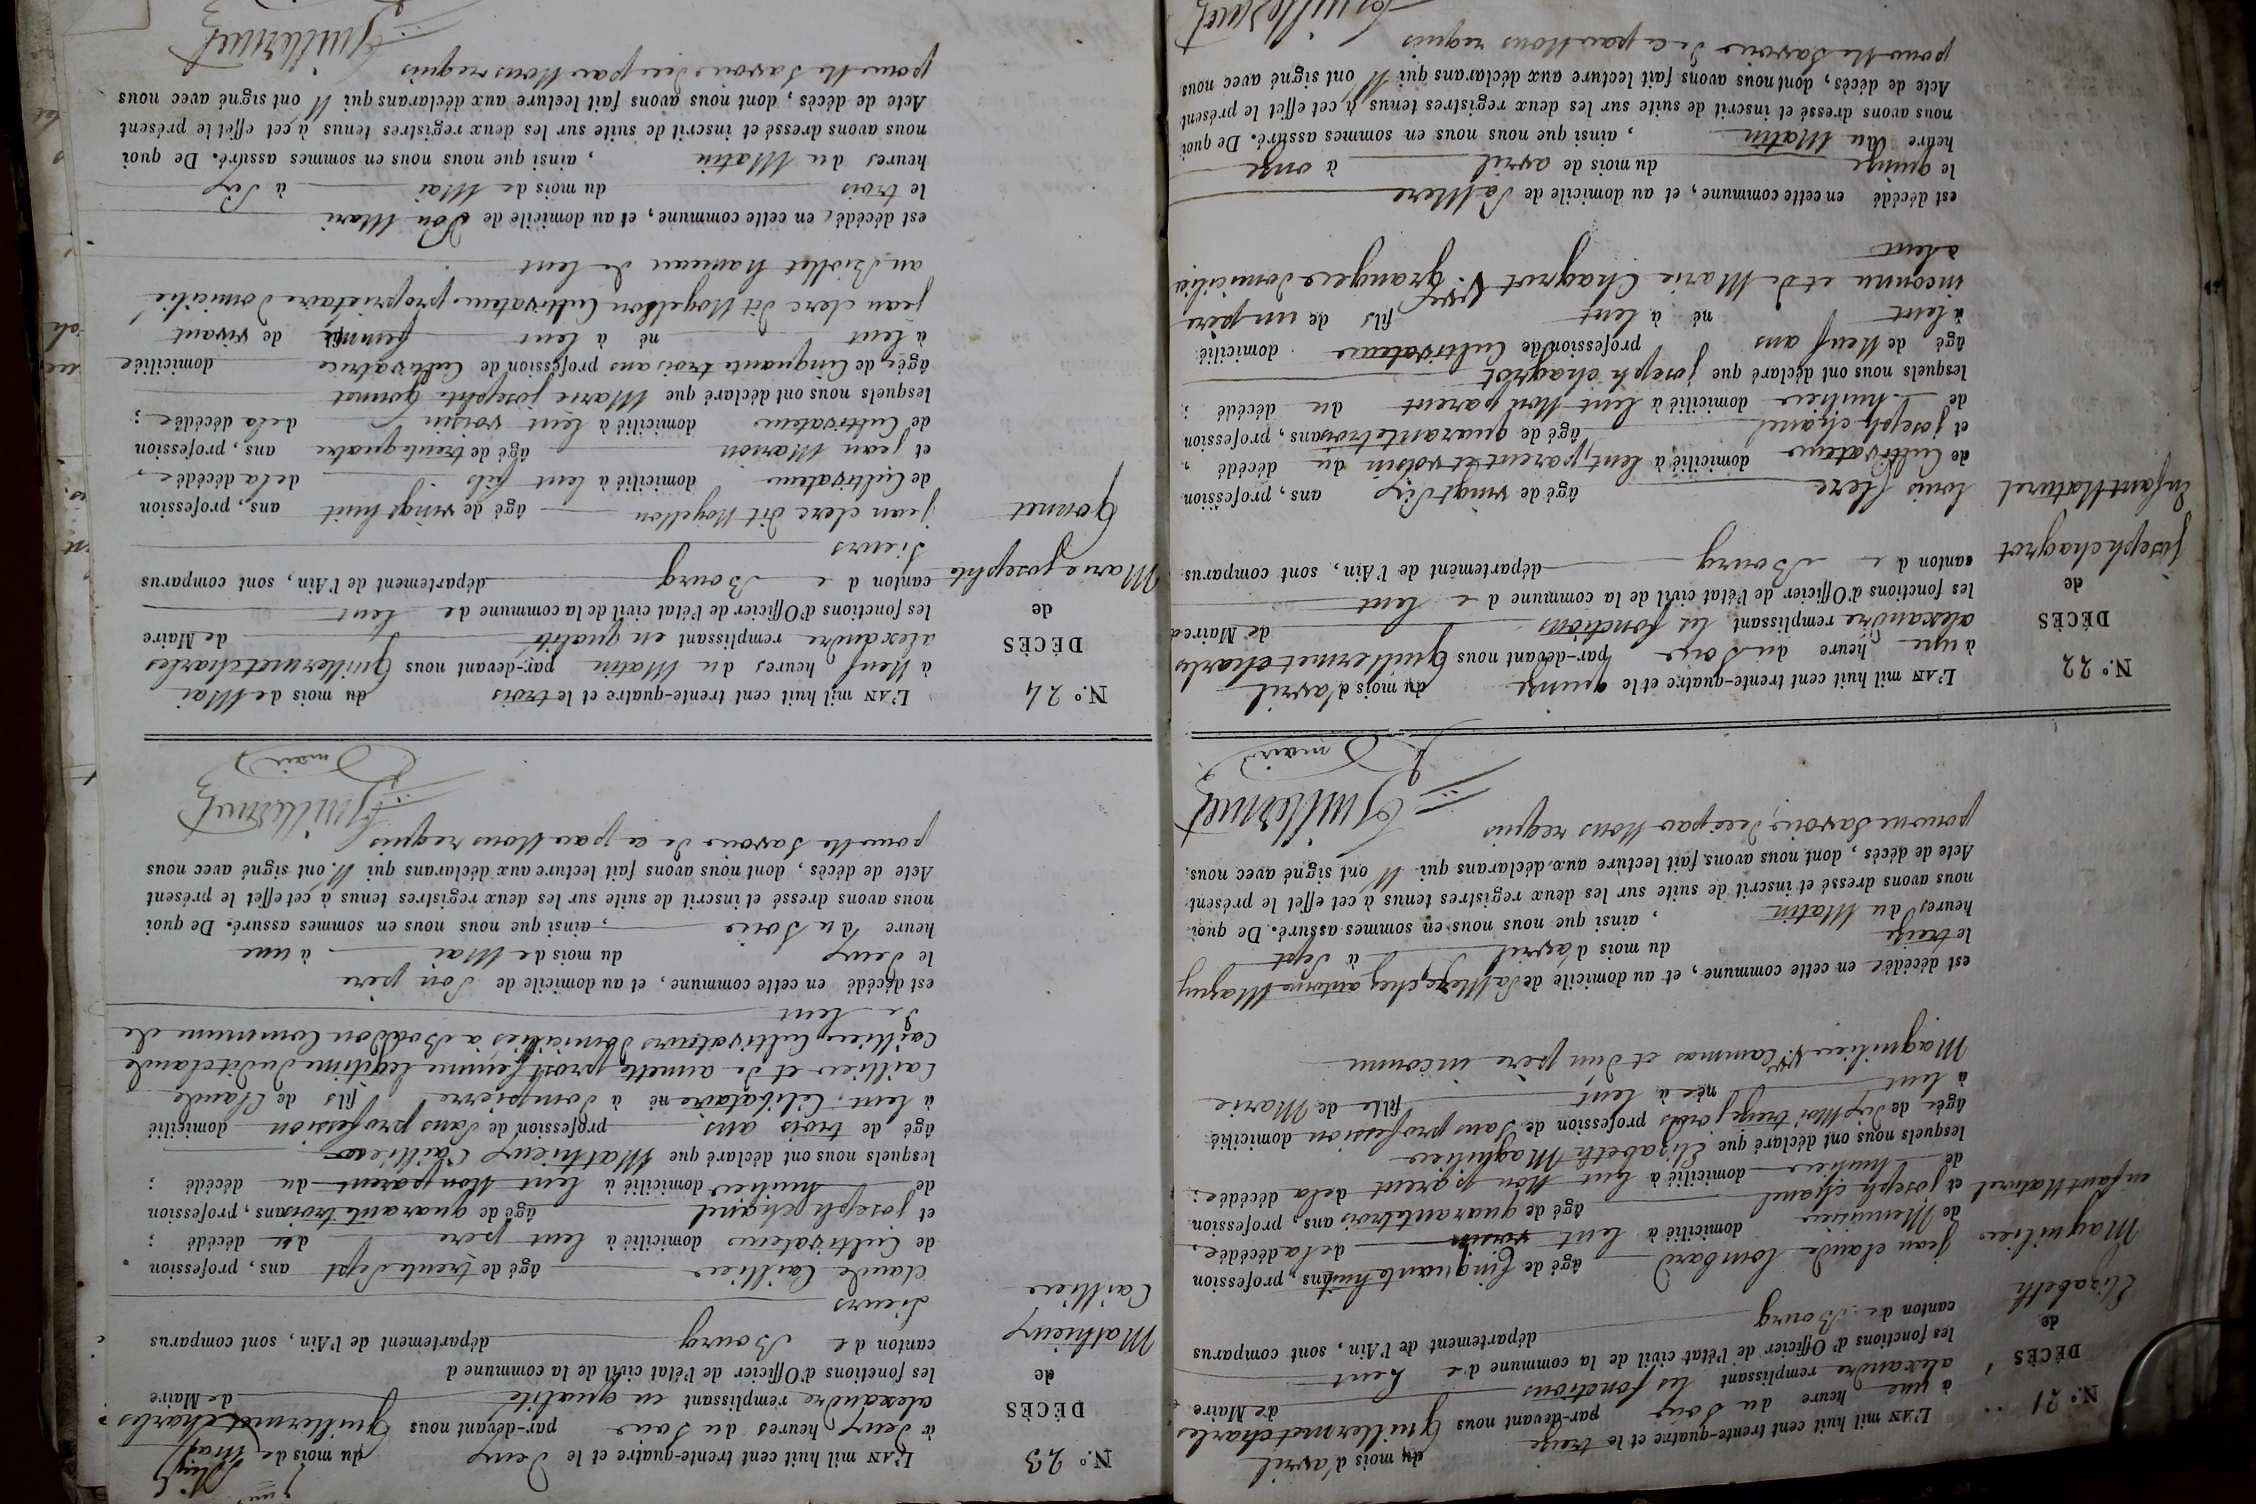 N.º 21
DÉCÈS
de
Elizabeth
Magnilier
enfant Naturel
L'AN mil huit cent trente-quatre et le treize du mois d'avril
à une heure du Soir par-devant nous Guillermet charles
alexandre remplissant les fonctions de Maire
les fonctions d'Officier de l'état civil de la commune de Lent
canton de Bourg département de l'Ain, sont comparus
jean claude Lombard âgé de Cinquante huit ans, profession
de Menuisier domicilié à lent voisin de la décédée,
et joseph chanel âgé de quarante trois ans, profession
de huilier domicilié à lent Non parent de la décédée;
lesquels nous ont déclaré que Elizabeth Magnilier
âgée de Six Moi treize jours profession de Sans profession domiciliée
à lent née à lent fille de Marie
Magnilier Vve Cammas et d'un père inconnu
est décédée en cette commune, et au domicile de Sa Mere, chez antoine Mazuy
le treize du mois d'avril à Sept
heures du Matin, ainsi que nous nous en sommes assuré. De quoi
nous avons dressé et inscrit de suite sur les deux registres tenus à cet effet le présent
Acte de décès, dont nous avons fait lecture aux déclarans qui N ont signé avec nous,
pour ne Savoir, de ce par Nous requis
Guillermet
maire
N.º 22
DÉCÈS
de
joseph chagrot
Enfant Naturel
L'AN mil huit cent trente-quatre et le quinze du mois d'avril
à une heure du Soir par-devant nous Guillermet charles
alexandre remplissant les fonctions de Maire
les fonctions d'Officier de l'état civil de la commune de lent
canton de Bourg département de l'Ain, sont comparus
louis Clerc âgé de vingt Six ans, profession
de Cultivateur domicilié à lent, parent et voisin du décédé,
et joseph chanel âgé de quarante trois ans, profession
de huilier domicilié à lent Non parent du décédé;
lesquels nous ont déclaré que joseph chagrot
âgé de Neuf ans profession de Cultivateur domicilié
à lent né à lent fils de un père
inconnu et de Marie Chagrot Vve granger domiciliée
a lent
est décédé en cette commune, et au domicile de Sa Mere
le quinze du mois de avril à onze
heure du Matin, ainsi que nous nous en sommes assuré. De quoi
nous avons dressé et inscrit de suite sur les deux registres tenus à cet effet le présent
Acte de décès, dont nous avons fait lecture aux déclarans qui N ont signé avec nous
pour Ne Savoir de ce par Nous requis
Guillermet
N.º 23
DÉCÈS
de
Mathieux
Caillier
L'AN mil huit cent trente-quatre et le deux du mois de Mai
à deux heures du Soir par-devant nous Guillermet charles
alexandre remplissant en qualité de Maire
les fonctions d'Officier de l'état civil de la commune d
canton de Bourg département de l'Ain, sont comparus
Sieurs
claude Caillier âgé de trente Sept ans, profession
de Cultivateur domicilié à lent père du décédé;
et joseph chanel âgé de quarante trois ans, profession
de huilier domicilié à lent Non parent du décédé;
lesquels nous ont déclaré que Matthieux Caillier
âgé de trois ans profession de Sans profession domicilié
à lent. Célibataire né à dompierre fils de Claude
Caillier et de annette prost femme légitime dudit claude
Caillier, Cultivateurs domiciliés à Commune de
de lent
est décédé en cette commune, et au domicile de Son père
le deux du mois de Mai à une
heure du Soir, ainsi que nous nous en sommes assuré. De quoi
nous avons dressé et inscrit de suite sur les deux registres tenus à cet effet le présent
Acte de décès, dont nous avons fait lecture aux déclarans qui N'ont signé avec nous
pour Ne Savoir de ce par Nous requis
Guillermet
maire
N.º 24
DÉCÈS
de
Marie josephte
Gonnet
L'AN mil huit cent trente-quatre et le trois du mois de Mai
à Neuf heures du Matin par-devant nous Guillermet charles
alexandre remplissant en qualité de Maire
les fonctions d'Officier de l'état civil de la commune de lent
canton de Bourg département de l'Ain, sont comparus
Sieurs
jean clerc dit Noyellon âgé de vingt huit ans, profession
de Cultivateur domicilié à lent fils de la décédée,
et jean Marion âgé de trente quatre ans, profession
de Cultivateur domicilié à lent voisin de la décédée;
lesquels nous ont déclaré que Marie josephte Gonnet
âgée de Cinquante trois ans profession de Cultivatrice domiciliée
à lent né à lent femme de vivant
jean clerc dit Noyellon Cultivateur propriétaire domicilié
au hameau de lent
est décédée, en cette commune, et au domicile de Son Mari
le trois du mois de Mai à Six
heures du Matin, ainsi que nous nous en sommes assuré. De quoi
nous avons dressé et inscrit de suite sur les deux registres tenus à cet effet le présent
Acte de décès, dont nous avons fait lecture aux déclarans qui N ont signé avec nous
pour Ne Savoir de ce par Nous requis
Guillermet